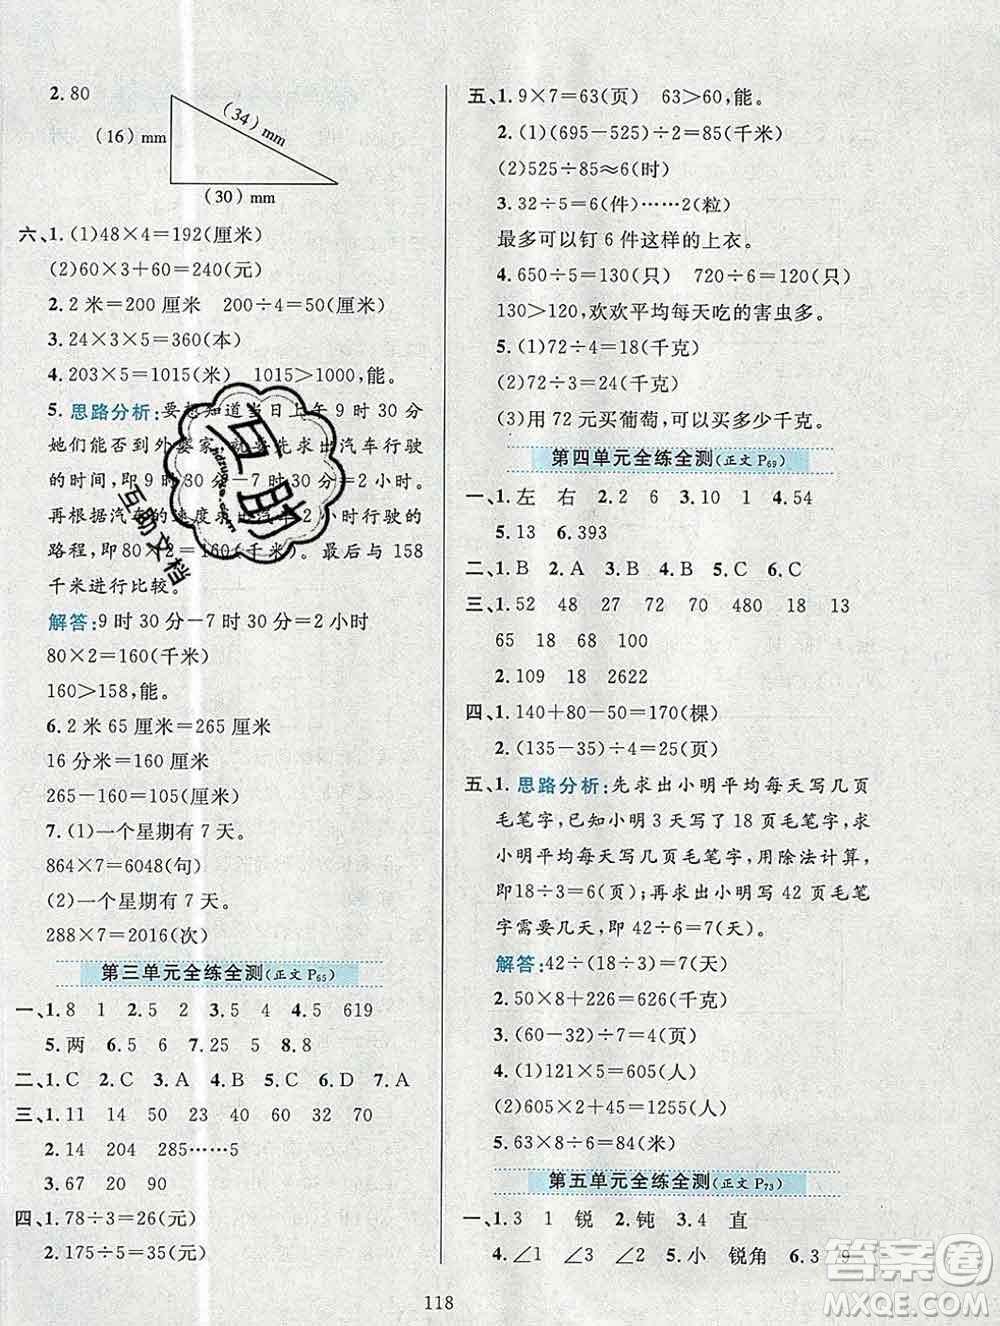 2.80
(16)mm
(34)mm
(30)mm
六、1.(1)48×4=192(厘米)
(2)60×3+60=240(元)
2.2 米=200 厘米 200÷4=50(厘米)
3.24×3×5=360(本)
4.203×5=1015(米) 1015>1000,能。
5.思路分析:要想知道当日上午 9 时 30 分
她们能否到外婆家,就要先求出汽车行驶
的时间,即 9 时 30 分-7 时 30 分=2 小时。
再根据汽车的速度求出汽车 2 小时行驶的
路程,即 80×2=160(千米)。最后与 158
千米进行比较。
解答:9 时 30 分-7 时 30 分=2 小时
80×2=160(千米)
160>158,能。
6.2 米 65 厘米=265 厘米
16 分米=160 厘米
265-160=105(厘米)
7.(1)一个星期有 7 天。
864×7=6048(句)
(2)一个星期有 7 天。
288×7=2016(次)
第三单元全练全测(正文 P65)
一、1.8 1 2.5 2 3.5 819 4.5 619
5.两 6.5 6 7.25 5 8.8
二、1.C 2.C 3.A 4.B 5.C 6.D 7.A
三、1.11 14 50 23 40 60 32 70
2.14 204 285……5
3.67 20 90
四、1.78÷3=26(元)
2.175÷5=35(元)
五、1.9×7=63(页) 63>60,能。
2.(1)(695-525)÷2=85(千米)
(2)525÷85≈6(时)
3.32÷5=6(件)……2(粒)
最多可以钉 6 件这样的上衣。
4.650÷5=130(只) 720÷6=120(只)
130>120,欢欢平均每天吃的害虫多。
5.(1)72÷4=18(千克)
(2)72÷3=24(千克)
(3)用 72 元买葡萄,可以买多少千克。
第四单元全练全测(正文 P69)
一、1.左 右 2.2 6 3.10 1 4.54
5.13 6.393
二、1.B 2.A 3.B 4.C 5.B
三、1.52 48 27 72 70 480 18 13
65 18 68 100
2.109 18 2622
四、1.140+80-50=170(棵)
2.(135-35)÷4=25(页)
五、1.思路分析:先求出小明平均每天写几页
毛笔字,已知小明 3 天写了 18 页毛笔字,求
小明平均每天写几页毛笔字,用除法计算,
即18÷3=6(页);再求出小明写 42 页毛笔
字需要几天,即 42÷6=7(天)。
解答:42÷(18÷3)=7(天)
2.50×8+226=626(千克)
3.(60-32)÷7=4(页)
4.(1)121×5=605(人)
(2)605×2+45=1255(人)
5.63×8÷6=84(米)
第五单元全练全测(正文 P73)
一、1.3 1 锐 2.钝 3.4 直
4.∠1 ∠3 ∠2 5.小 锐角 6.3 9
118
互助
jidzuguo.com
互助文档
答案圈
MXQE.COM